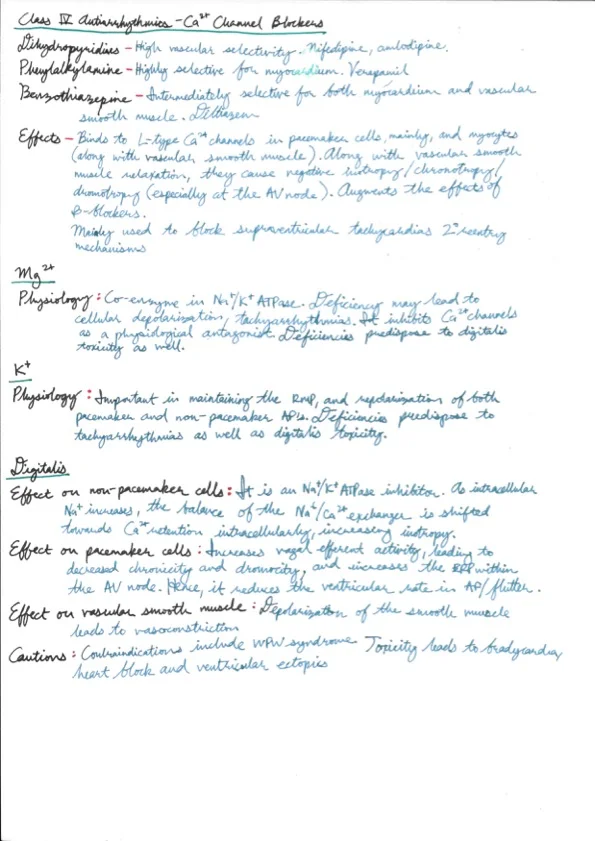 Class IV Antiarrhythmics - Ca²⁺ Channel Blockers
Dihydropyridines - High vascular selectivity. Nifedipine, amlodipine.
Phenylalkylamine - Highly selective for myocardium. Verapamil
Benzothiazepine - Intermediately selective for both myocardium and vascular
smooth muscle. Diltiazem
Effects - Binds to L-type Ca²⁺ channels in pacemaker cells, mainly, and myocytes
(along with vascular smooth muscle). Along with vascular smooth
muscle relaxation, they cause negative inotropy/chronotropy/
dromotropy (especially at the AV node). Augments the effects of
β-blockers.
Mainly used to block supraventricular tachycardias 2° reentry
mechanisms
Mg²⁺
Physiology: Co-enzyme in Na⁺/K⁺ ATPase. Deficiency may lead to
cellular depolarization, tachyarrhythmias. It inhibits Ca²⁺ channels
as a physiological antagonist. Deficiencies predispose to digitalis
toxicity as well.
K⁺
Physiology: Important in maintaining the RMP, and repolarization of both
pacemaker and non-pacemaker AP's. Deficiencies predispose to
tachyarrhythmias as well as digitalis toxicity.
Digitalis
Effect on non-pacemaker cells: It is an Na⁺/K⁺ ATPase inhibitor. As intracellular
Na⁺ increases, the balance of the Na⁺/Ca²⁺ exchanger is shifted
towards Ca²⁺ retention intracellularly, increasing inotropy.
Effect on pacemaker cells: Increases vagal efferent activity, leading to
decreased chronicity and dromocity, and increases the ERP within
the AV node. Hence, it reduces the ventricular rate in AF/flutter.
Effect on vascular smooth muscle: Depolarization of the smooth muscle
leads to vasoconstriction
Cautions: Contraindications include WPW syndrome Toxicity leads to bradycardia,
heart block and ventricular ectopics